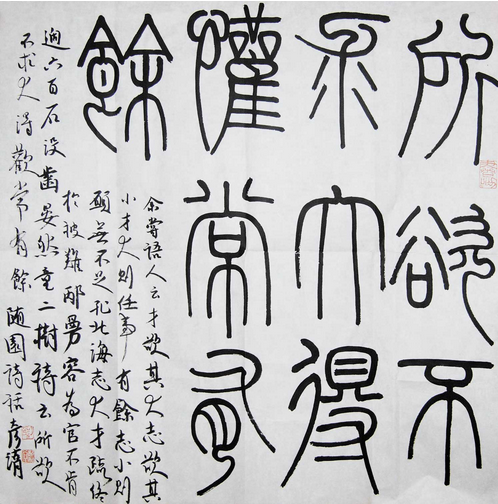 所欲不
求大得
懽常有
餘
余嘗語人云才欲其大志欲其
小才大則任事有餘志小則
願無不足孔北海志大才疏終
於被難邴曼容為官不肯
過六百石没齒晏然童二樹詩云所欲
不求大得歡常有餘隨園詩話